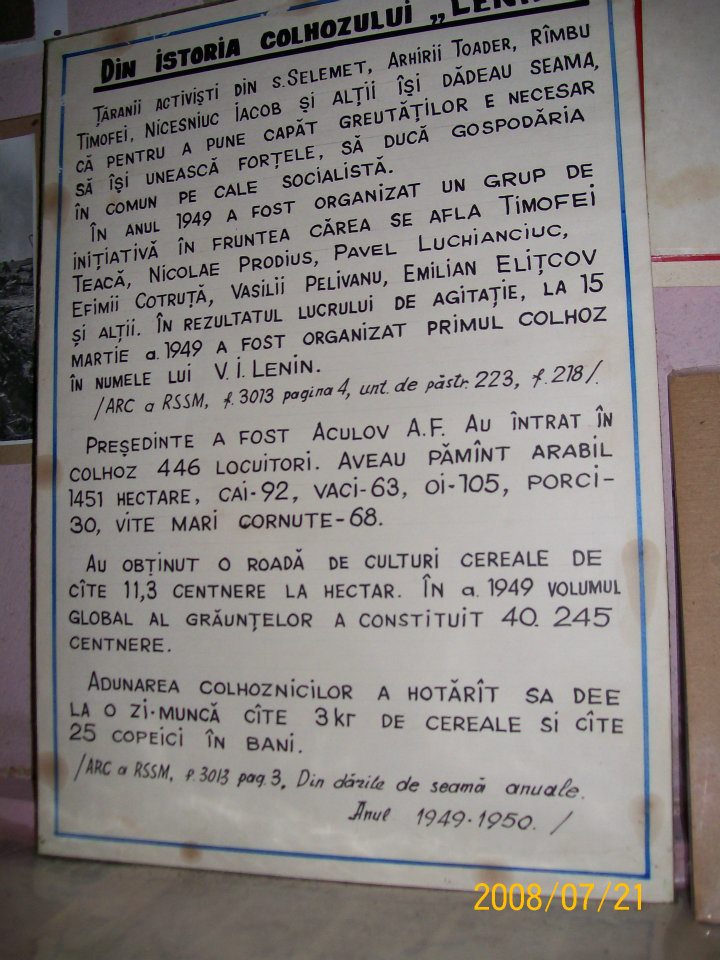 DIN ISTORIA COLHOZULUI „LENIN
ȚĂRANII ACTIVIȘTI DIN S. SELEMET, ARHIRII TOADER, RÎMBU
TIMOFEI, NICESNIUC IACOB ȘI ALȚII ÎȘI DĂDEAU SEAMA,
CĂ PENTRU A PUNE CAPĂT GREUTĂȚILOR E NECESAR
SĂ ÎȘI UNEASCĂ FORȚELE, SĂ DUCĂ GOSPODĂRIA
ÎN COMUN PE CALE SOCIALISTĂ.
ÎN ANUL 1949 A FOST ORGANIZAT UN GRUP DE
INIȚIATIVĂ ÎN FRUNTEA CĂREA SE AFLA TIMOFEI
TEACĂ, NICOLAE PRODIUS, PAVEL LUCHIANCIUC,
EFIMII COTRUȚĂ, VASILII PELIVANU, EMILIAN ELIȚCOV
ȘI ALȚII. ÎN REZULTATUL LUCRULUI DE AGITAȚIE, LA 15
MARTIE a. 1949 A FOST ORGANIZAT PRIMUL COLHOZ
ÎN NUMELE LUI V. I. LENIN.
/ARC a RSSM, f. 3013 pagina 4, unt. de păstr. 223, f. 218/.
PREȘEDINTE A FOST ACULOV A.F. AU ÎNTRAT ÎN
COLHOZ 446 LOCUITORI. AVEAU PĂMÎNT ARABIL
1451 HECTARE, CAI-92, VACI-63, OI-105, PORCI-
30, VITE MARI CORNUTE-68.
AU OBȚINUT O ROADĂ DE CULTURI CEREALE DE
CÎTE 11,3 CENTNERE LA HECTAR. ÎN a. 1949 VOLUMUL
GLOBAL AL GRĂUNȚELOR A CONSTITUIT 40. 245
CENTNERE.
ADUNAREA COLHOZNICILOR A HOTĂRÎT SA DEE
LA O ZI-MUNCĂ CÎTE 3 кг DE CEREALE SI CÎTE
25 COPEICI ÎN BANI.
/ARC a RSSM, f. 3013 pag. 3. Din dările de seamă anuale.
Anul 1949-1950. /
2008/07/21